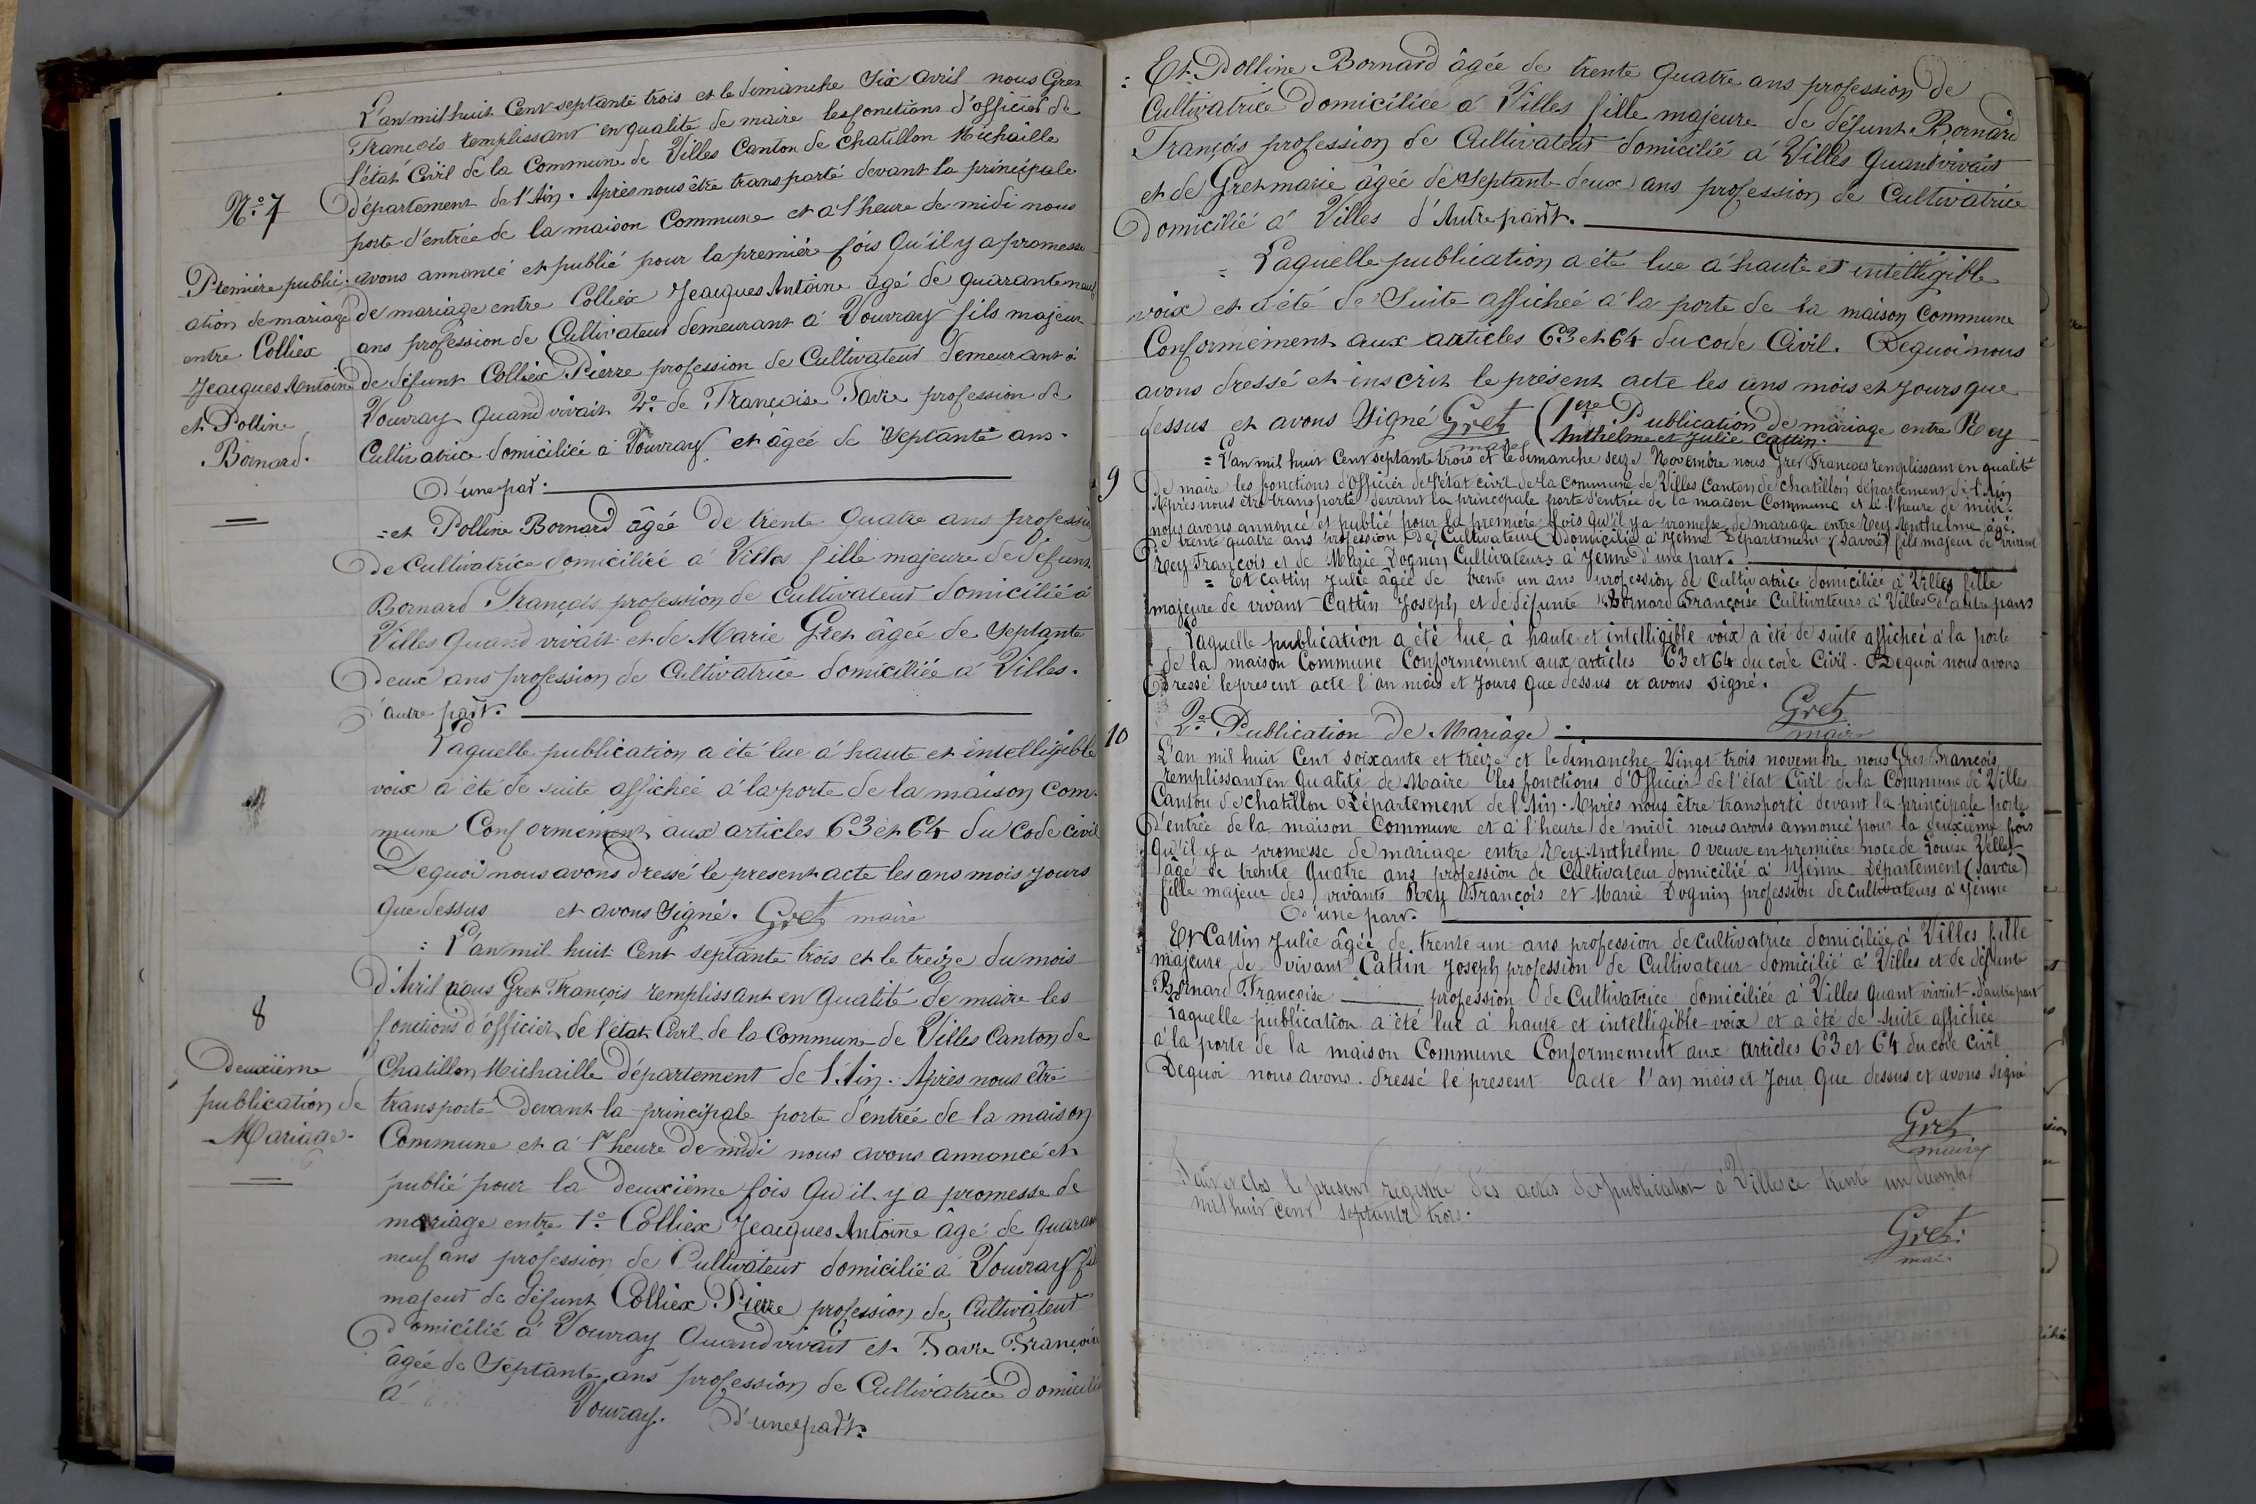 L'an mil huit Cent septante trois et le dimanche Six avril nous Gret
François remplissant en qualité de maire les fonctions d'officier de
l'état Civil de la Commune de Villes Canton de Chatillon Michaille
département de l'Ain. Après nous être transporté devant la principale
porte d'entrée de la maison Commune et à l'heure de midi nous
N° 7
Première publi-
ation de mariage
entre Colliex
Jeacques Antoine
et Polline
Bornard.
avons annoncé et publié pour la première fois Qu'il y a promesse
de mariage entre Colliex Jeacques Antoine âgé de quarante neuf
ans profession de Cultivateur demeurant à Vouvray fils majeur
de défunt Colliex Pierre profession de Cultivateur demeurant à
Vouvray Quand vivait 2° de Françoise Favre profession de
Cultivatrice domiciliée à Vouvray et âgée de Septante ans.
D'une part.
= et Polline Bornard âgée De trente Quatre ans profession
De Cultivatrice domiciliée à Villes fille majeure de défunt
Bornard François profession de Cultivateur domicilié à
Villes Quand vivait et de Marie Gret âgée de Septante
Deux ans profession de Cultivatrice domiciliée à Villes.
d'autre part.
Laquelle publication a été lue à haute et intelligible
voix a été de suite affichée à la porte de la maison Com-
mune Conformement aux articles 63 et 64 du Code Civil
De quoi nous avons Dressé le present acte les ans mois jours
que dessus et avons signé. Gret maire
8
Deuxième
publication de
Mariage.
= L'an mil huit Cent septante trois et le treize du mois
d'Avril nous Gret François remplissant en Qualité de maire les
fonctions d'officier de l'état Civil de la Commune de Villes Canton de
Chatillon Michaille département de l'Ain. Après nous être
transporté Devant la principale porte d'entrée de la maison
Commune et à l'heure De midi nous avons annoncé et
publié pour la Deuxième fois Qu'il y a promesse de
mariage entre 1° Colliex Jeacques Antoine âgé de quarante
neuf ans profession de Cultivateur domicilié à Vouvray fils
majeur de défunt Colliex Pierre profession de Cultivateur
Domicilié à Vouvray Quand vivait et Favre Françoise
âgée de Septante ans profession de Cultivatrice Domiciliée
à Vouvray. D'une part.
= Et Polline Bornard âgée de trente Quatre ans profession De
Cultivatrice Domiciliée à Villes fille majeure de défunt Bornard
François profession de Cultivateur domicilié à Villes Quant vivait
et de Gret marie âgée de Septante deux ans profession de Cultivatrice
domicilié à Villes d'Autre part.
= Laquelle publication a été lue à haute et intelligible
voix et a été de Suite affichée à la porte de la maison Commune
Conformement aux articles 63 et 64 du code Civil. De quoi nous
avons dressé et inscrit le présent acte les ans mois et jours que
dessus et avons Signé Gret maire (1ère Publication de mariage entre Rey
Anthelme et Julie Cattin.
9
= L'an mil huit Cent septante trois et le dimanche seize Novembre nous Gret François remplissant en qualité
De maire les fonctions d'Officier de l'état civil de la Commune de Villes Canton de Chatillon département de l'Ain
Après nous être transporté devant la principale porte d'entrée de la maison Commune et à l'heure de midi.
nous avons annoncé et publié pour la première fois Qu'il y a promesse de mariage entre Rey Anthelme âgé.
De trente quatre ans profession De Cultivateur Domicilié à Yenne Département (Savoie) fils majeur de vivant
Rey François et de Marie Dognin Cultivateurs à Yenne d'une part.
= Et Cattin Julie âgée de trente un ans profession de Cultivatrice domiciliée à Villes fille
majeure de vivant Cattin Joseph et de défunte Bornard Françoise Cultivateurs à Villes d'autre part
Laquelle publication a été lue à haute et intelligible voix a été de suite affichée à la porte
de la maison Commune Conformément aux articles 63 et 64 du code Civil. De quoi nous avons
Dressé le present acte l'an mois et Jours Que dessus et avons signé.
Gret
maire
10
2e Publication De Mariage.
L'an mil huit Cent soixante et treize et le dimanche Vingt trois novembre nous Gret François
remplissant en Qualité de Maire les fonctions d'Officier de l'état Civil de la Commune de Villes
Canton de Chatillon Département de l'Ain. Après nous être transporté devant la principale porte
D'entrée de la maison Commune et à l'heure de midi nous avons annoncé pour la deuxième fois
Qu'il y a promesse de mariage entre Rey Anthelme veuve en première noce de Louise
âgé de trente Quatre ans profession de Cultivateur domicilié à Yenne Département (Savoie)
fille majeur des vivants Rey François et Marie Dognin profession de cultivateurs à Yenne
D'une part.
Et Cattin Julie âgée de trente un ans profession de cultivatrice domiciliée à Villes fille
majeure de vivant Cattin Joseph profession de Cultivateur domicilié à Villes et de défunte
Bornard Françoise profession de Cultivatrice domiciliée à Villes Quant vivait d'autre part
Laquelle publication a été lue à haute et intelligible voix et a été de suite affichée
à la porte de la maison Commune Conformement aux articles 63 et 64 du code Civil
De quoi nous avons dressé le present acte l'an mois et Jour Que dessus et avons signé
Gret
maire
le present registre des actes de publication à Villes ce trente un décembre
mil huit cent septante trois.
Gret.
mai